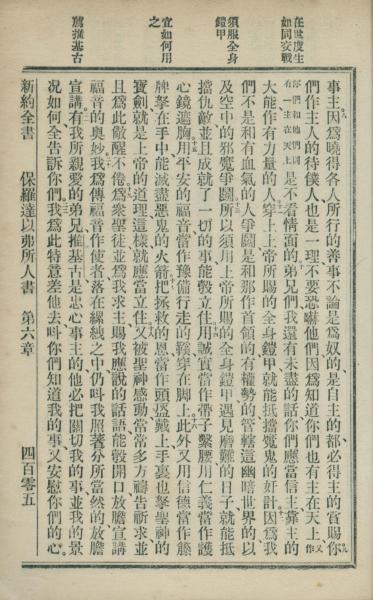 在世度生
如同交戰
須服全身
鎧甲
宜如何用
之
薦推基古
事主因爲曉得各人所行的善事不論是爲奴的是自主的都必得主的賞賜你
們作主人的待僕人也是一理不要恐嚇他們因爲知道你們也有主在天上又
你們和他們同有一主在天上是不看情面的弟兄們我還有未盡的話你們應當信主靠主的
大能作有力量的人穿上上帝所賜的全身鎧甲就能抵擋魔鬼的奸計因爲我
們不是和有血氣的人爭鬬是和那作首領的有權勢的管轄這幽暗世界的以
及空中的邪魔爭鬬所以須用上帝所賜的全身鎧甲遇見磨難的日子就能抵
擋仇敵並且成就了一切的事能彀立住用誠實當作帶子繫腰用仁義當作護
心鏡遮胸用平安的福音當作豫備行走的鞋穿在脚上此外又用信德當作籐
牌拏在手中能滅盡惡鬼的火箭把拯救的恩當作頭盔戴上手裏也拏聖神的
寶劍就是上帝的道理這樣就應當立住又被聖神感動常常多方禱告祈求並
且爲此儆醒不倦爲衆聖徒並爲我求主賜我應說的話語能彀開口放膽宣講
福音的奧妙我爲傳福音作使者落在縲絏之中仍呌我照著分所當然的放膽
宣講有我所親愛的弟兄推基古是忠心事主的他必把關切我的事並我的景
况如何全告訴你們我爲此特意差他去呌你們知道我的事又安慰你們的心
新約全書 保羅達以弗所人書 第六章 四百零五